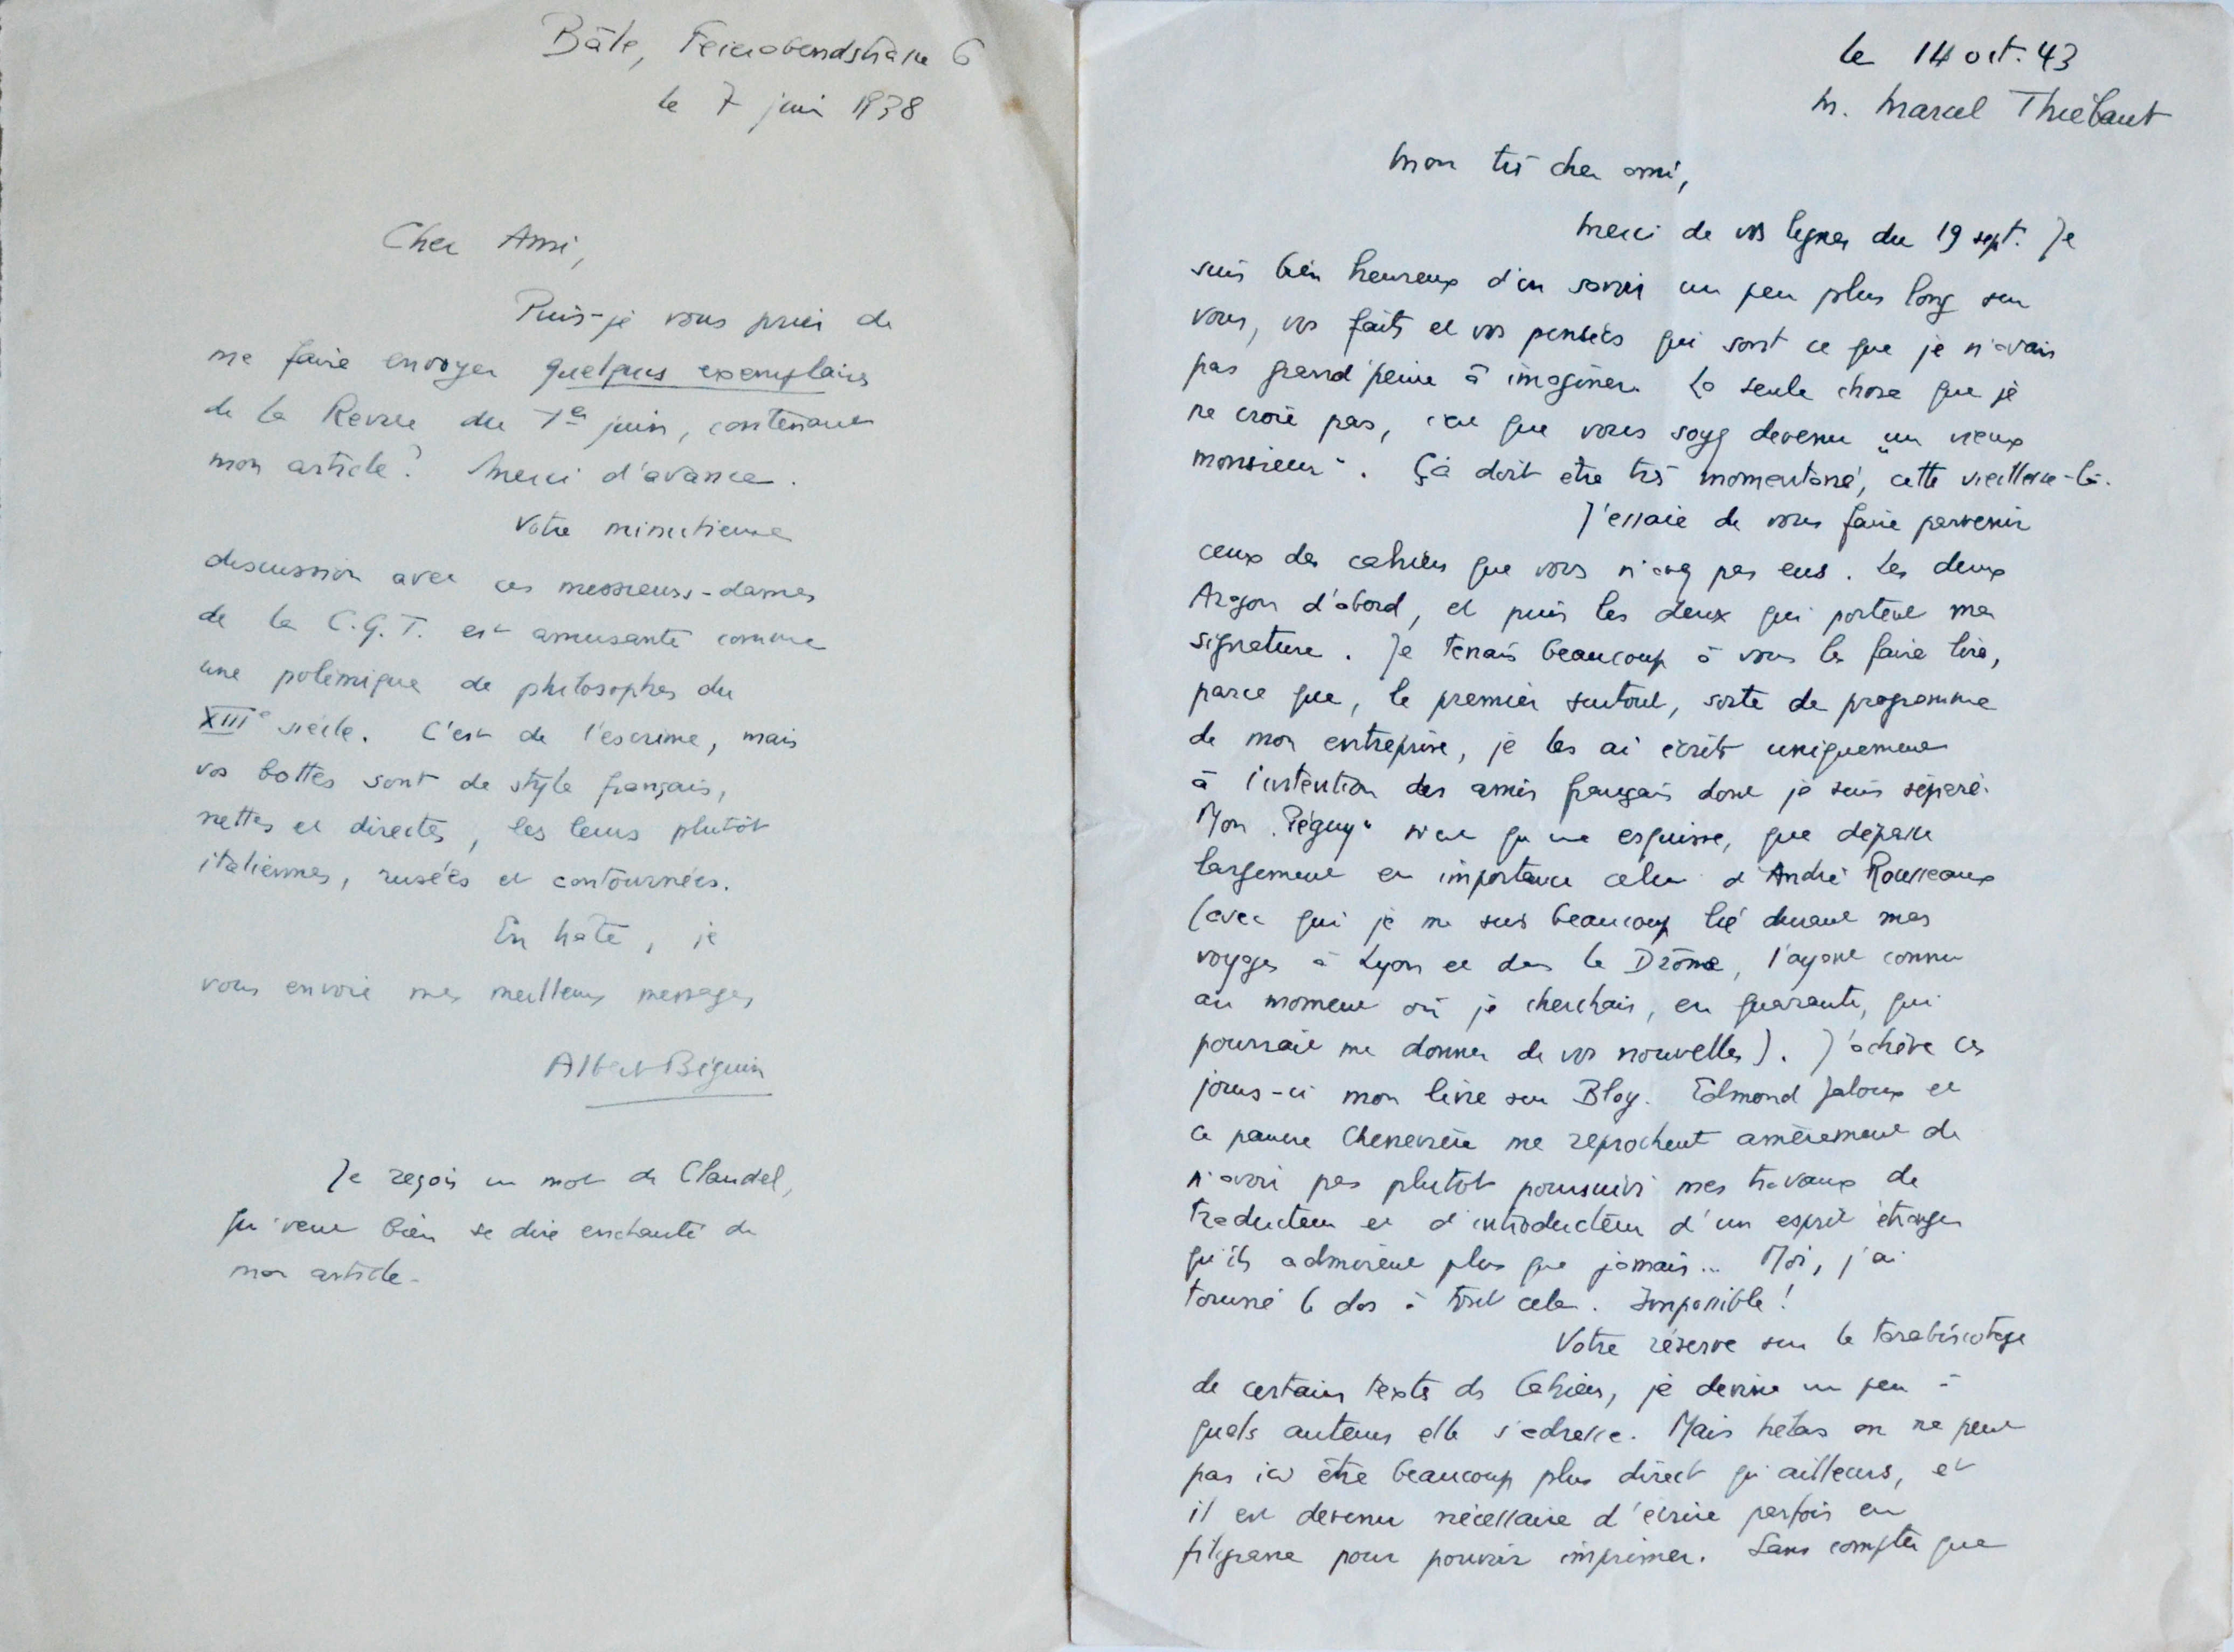 Bâle, Feierabendstrasse 6
le 7 juin 1938
Cher Ami,
Puis-je vous prier de
me faire envoyer quelques exemplaires
de la Revue du 1er juin, contenant
mon article? Merci d'avance.
Votre minutieuse
discussion avec ces messieurs-dames
de la C.G.T. est amusante comme
une polémique de philosophes du
XIIIe siècle. C'est de l'escrime, mais
vos bottes sont de style français,
nettes et directes, les leurs plutôt
italiennes, rusées et contournées.
En hâte, je
vous envoie mes meilleurs messages
Albert Béguin
Je reçois un mot de Claudel,
qui veut bien se dire enchanté de
mon article.
le 14 oct. 43
M. Marcel Thiébaut
Mon très cher ami,
Merci de vos lignes du 19 sept. Je
suis bien heureux d'en savoir un peu plus long sur
vous, vos faits et vos pensées qui sont ce que je n'avais
pas grand'peine à imaginer. La seule chose que je
ne croie pas, c'est que vous soyez devenu "un vieux
monsieur". Çà doit être très momentané, cette vieillesse-là.
J'essaie de vous faire parvenir
ceux des cahiers que vous n'avez pas eus. Les deux
Aragon d'abord, et puis les deux qui portent ma
signature. Je tenais beaucoup à vous les faire lire,
parce que, le premier surtout, sorte de programme
de mon entreprise, je les ai écrits uniquement
à l'intention des amis français dont je suis séparé.
Mon "Péguy" n'est qu'une esquisse, que dépasse
largement en importance celui d'André Rousseaux
(avec qui je me suis beaucoup lié durant mes
voyages à Lyon et dans la Drôme, l'ayant connu
au moment où je cherchais, en quarante, qui
pourrait me donner de vos nouvelles). J'achève ces
jours-ci mon livre sur Bloy. Edmond Jaloux et
ce pauvre Chenevière me reprochent amèrement de
n'avoir pas plutôt poursuivi mes travaux de
traducteur et d'introducteur d'un esprit étranger
qu'ils admirent plus que jamais... Moi, j'ai
tourné le dos à tout cela. Impossible!
Votre réserve sur le tarabiscotage
de certains textes des Cahiers, je devine un peu à
quels auteurs elle s'adresse. Mais hélas on ne peut
pas ici être beaucoup plus direct qu'ailleurs, et
il est devenu nécessaire d'écrire parfois en
filigrane pour pouvoir imprimer. Sans compter que